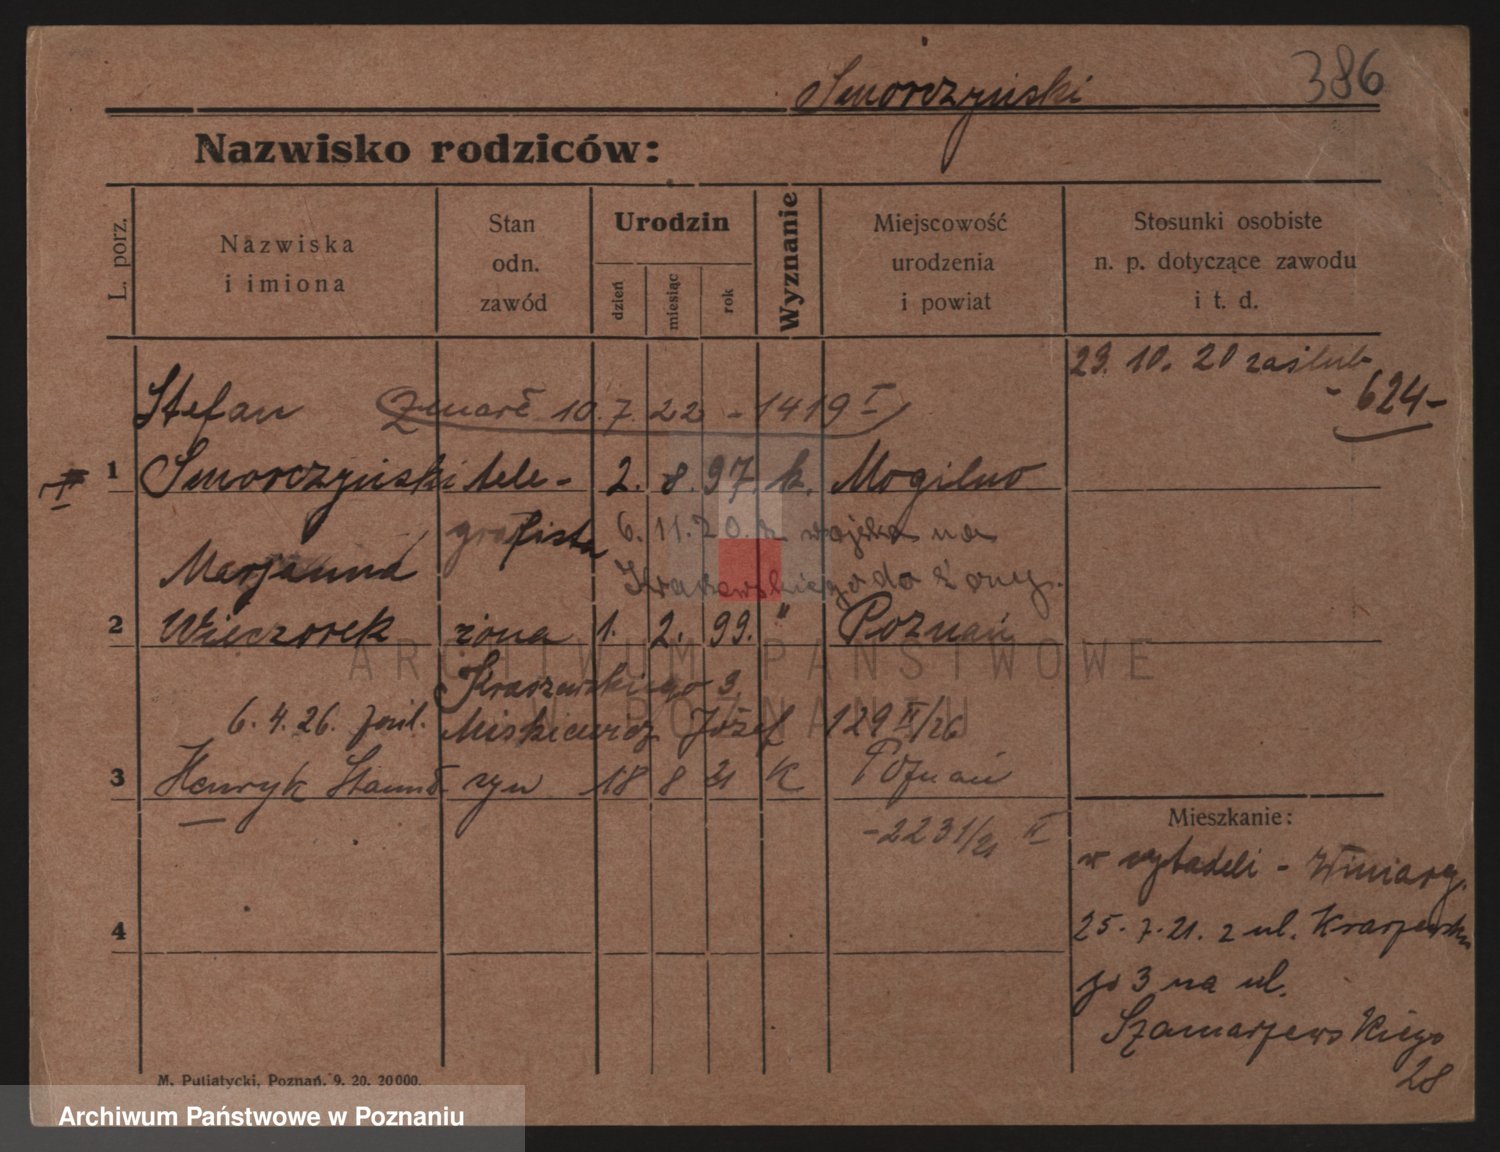 Smorczyński
386
Nazwisko rodziców:
L. porz.
Nazwiska
i imiona
Stan
odn.
zawód
Urodzin
dzień
miesiąc
rok
Wyznanie
Miejscowość
urodzenia
i powiat
Stosunki osobiste
n. p. dotyczące zawodu
i t. d.
29. 10. 20 zaślub
- 624 -
Stefan
Zmarł 10. 7. 22 - 1419 I
1 Smorczyński tele- 2. 8. 97. k. Mogilno
grafista 6. 11. 20. z wojska na
Marjanna
Kraszewskiego do żony.
2 Wieczorek żona 1. 2. 99. " Poznań
Kraszewskiego 3
6. 4. 26. Miskiewicz Józef 129 II/26
3 Henryk syn 18 8 21 K Poznań
- 2231/21 II
4
Mieszkanie:
w cytadeli - Winiary.
25. 7. 21. z ul. Kraszewskie
go 3 na ul.
Szamarzewskiego
28
M. Putiatycki, Poznań. 9. 20. 20000.
ARCHIWUM PAŃSTWOWE
W POZNANIU
Archiwum Państwowe w Poznaniu